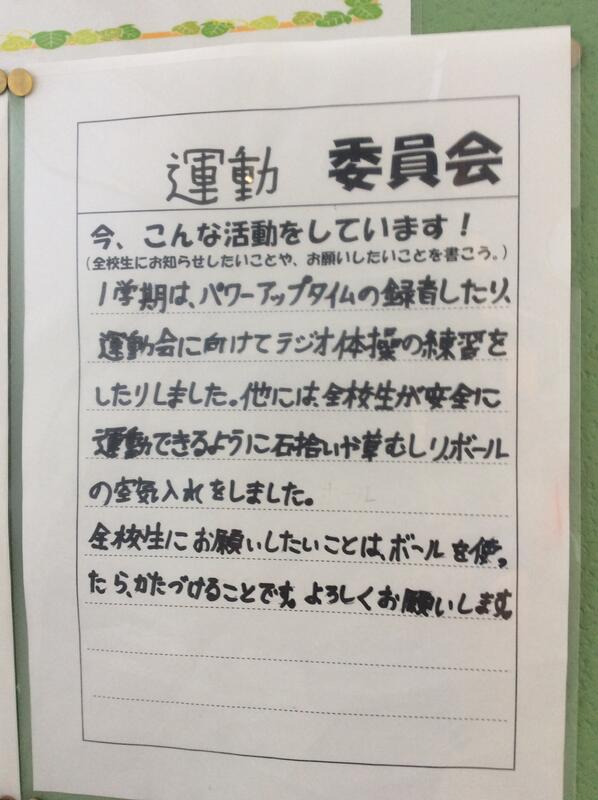 運動 委員会
今、こんな活動をしています！
（全校生にお知らせしたいことや、お願いしたいことを書こう。）
1学期は、パワーアップタイムの録音したり、
運動会に向けてラジオ体操の練習を
したりしました。他には、全校生が安全に
運動できるように石拾いや草むしり、ボール
の空気入れをしました。
全校生にお願いしたいことは、ボールを使っ
たら、かたづけることです。よろしくお願いします。